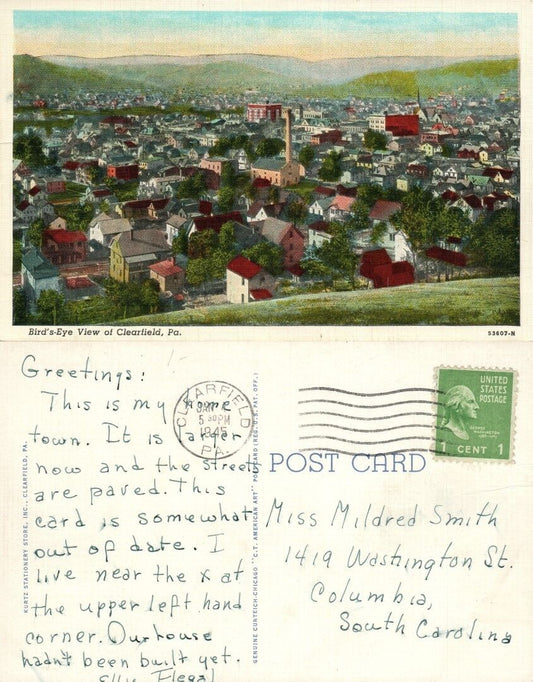 Bird's-Eye View of Clearfield, Pa.
53607-N
Greetings:
This is my home
town. It is larger
now and the streets
are paved. This
card is somewhat
out of date. I
live near the x at
the upper left hand
corner. Our house
hadn't been built yet.
Flegal
KURTZ STATIONERY STORE, INC., CLEARFIELD, PA.
GENUINE CURTEICH-CHICAGO "C.T. AMERICAN ART" POST CARD (REG. U.S. PAT. OFF.)
CLEARFIELD
JAN
5 30 PM
1945
PA.
UNITED
STATES
POSTAGE
GEORGE
WASHINGTON
1 CENT 1
POST CARD
Miss Mildred Smith
1419 Washington St.
Columbia,
South Carolina